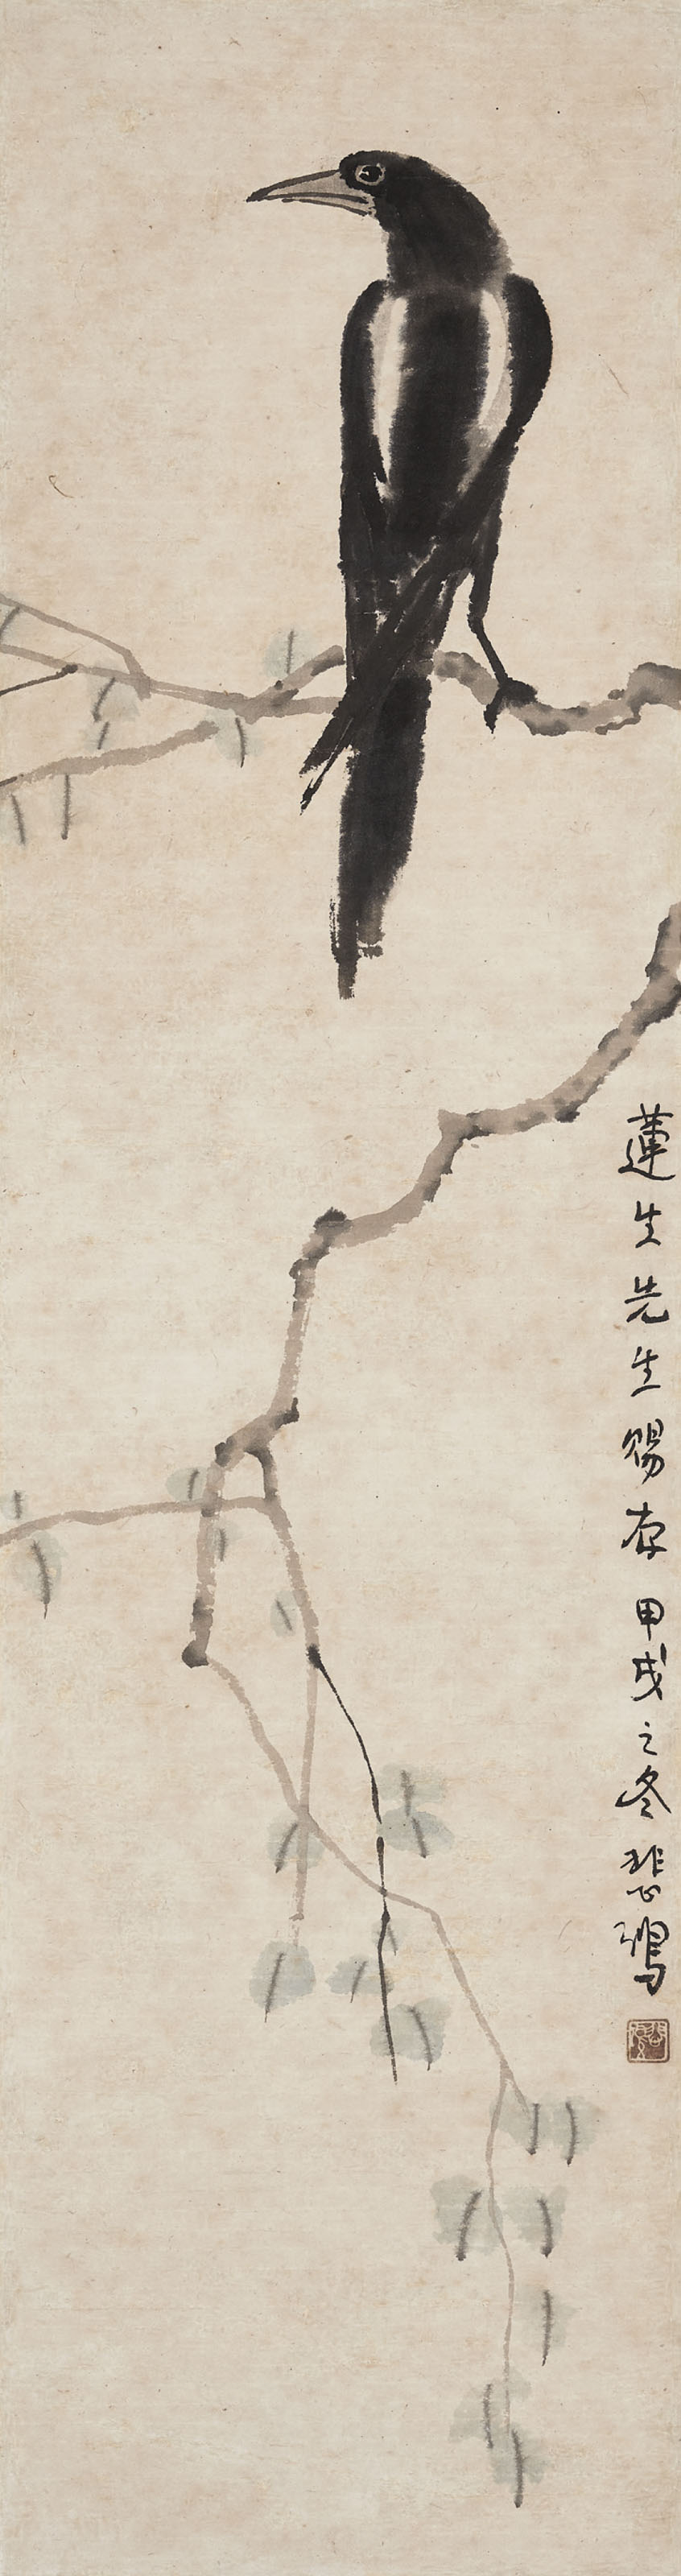 蓮生先生賜存甲戌之冬悲鴻